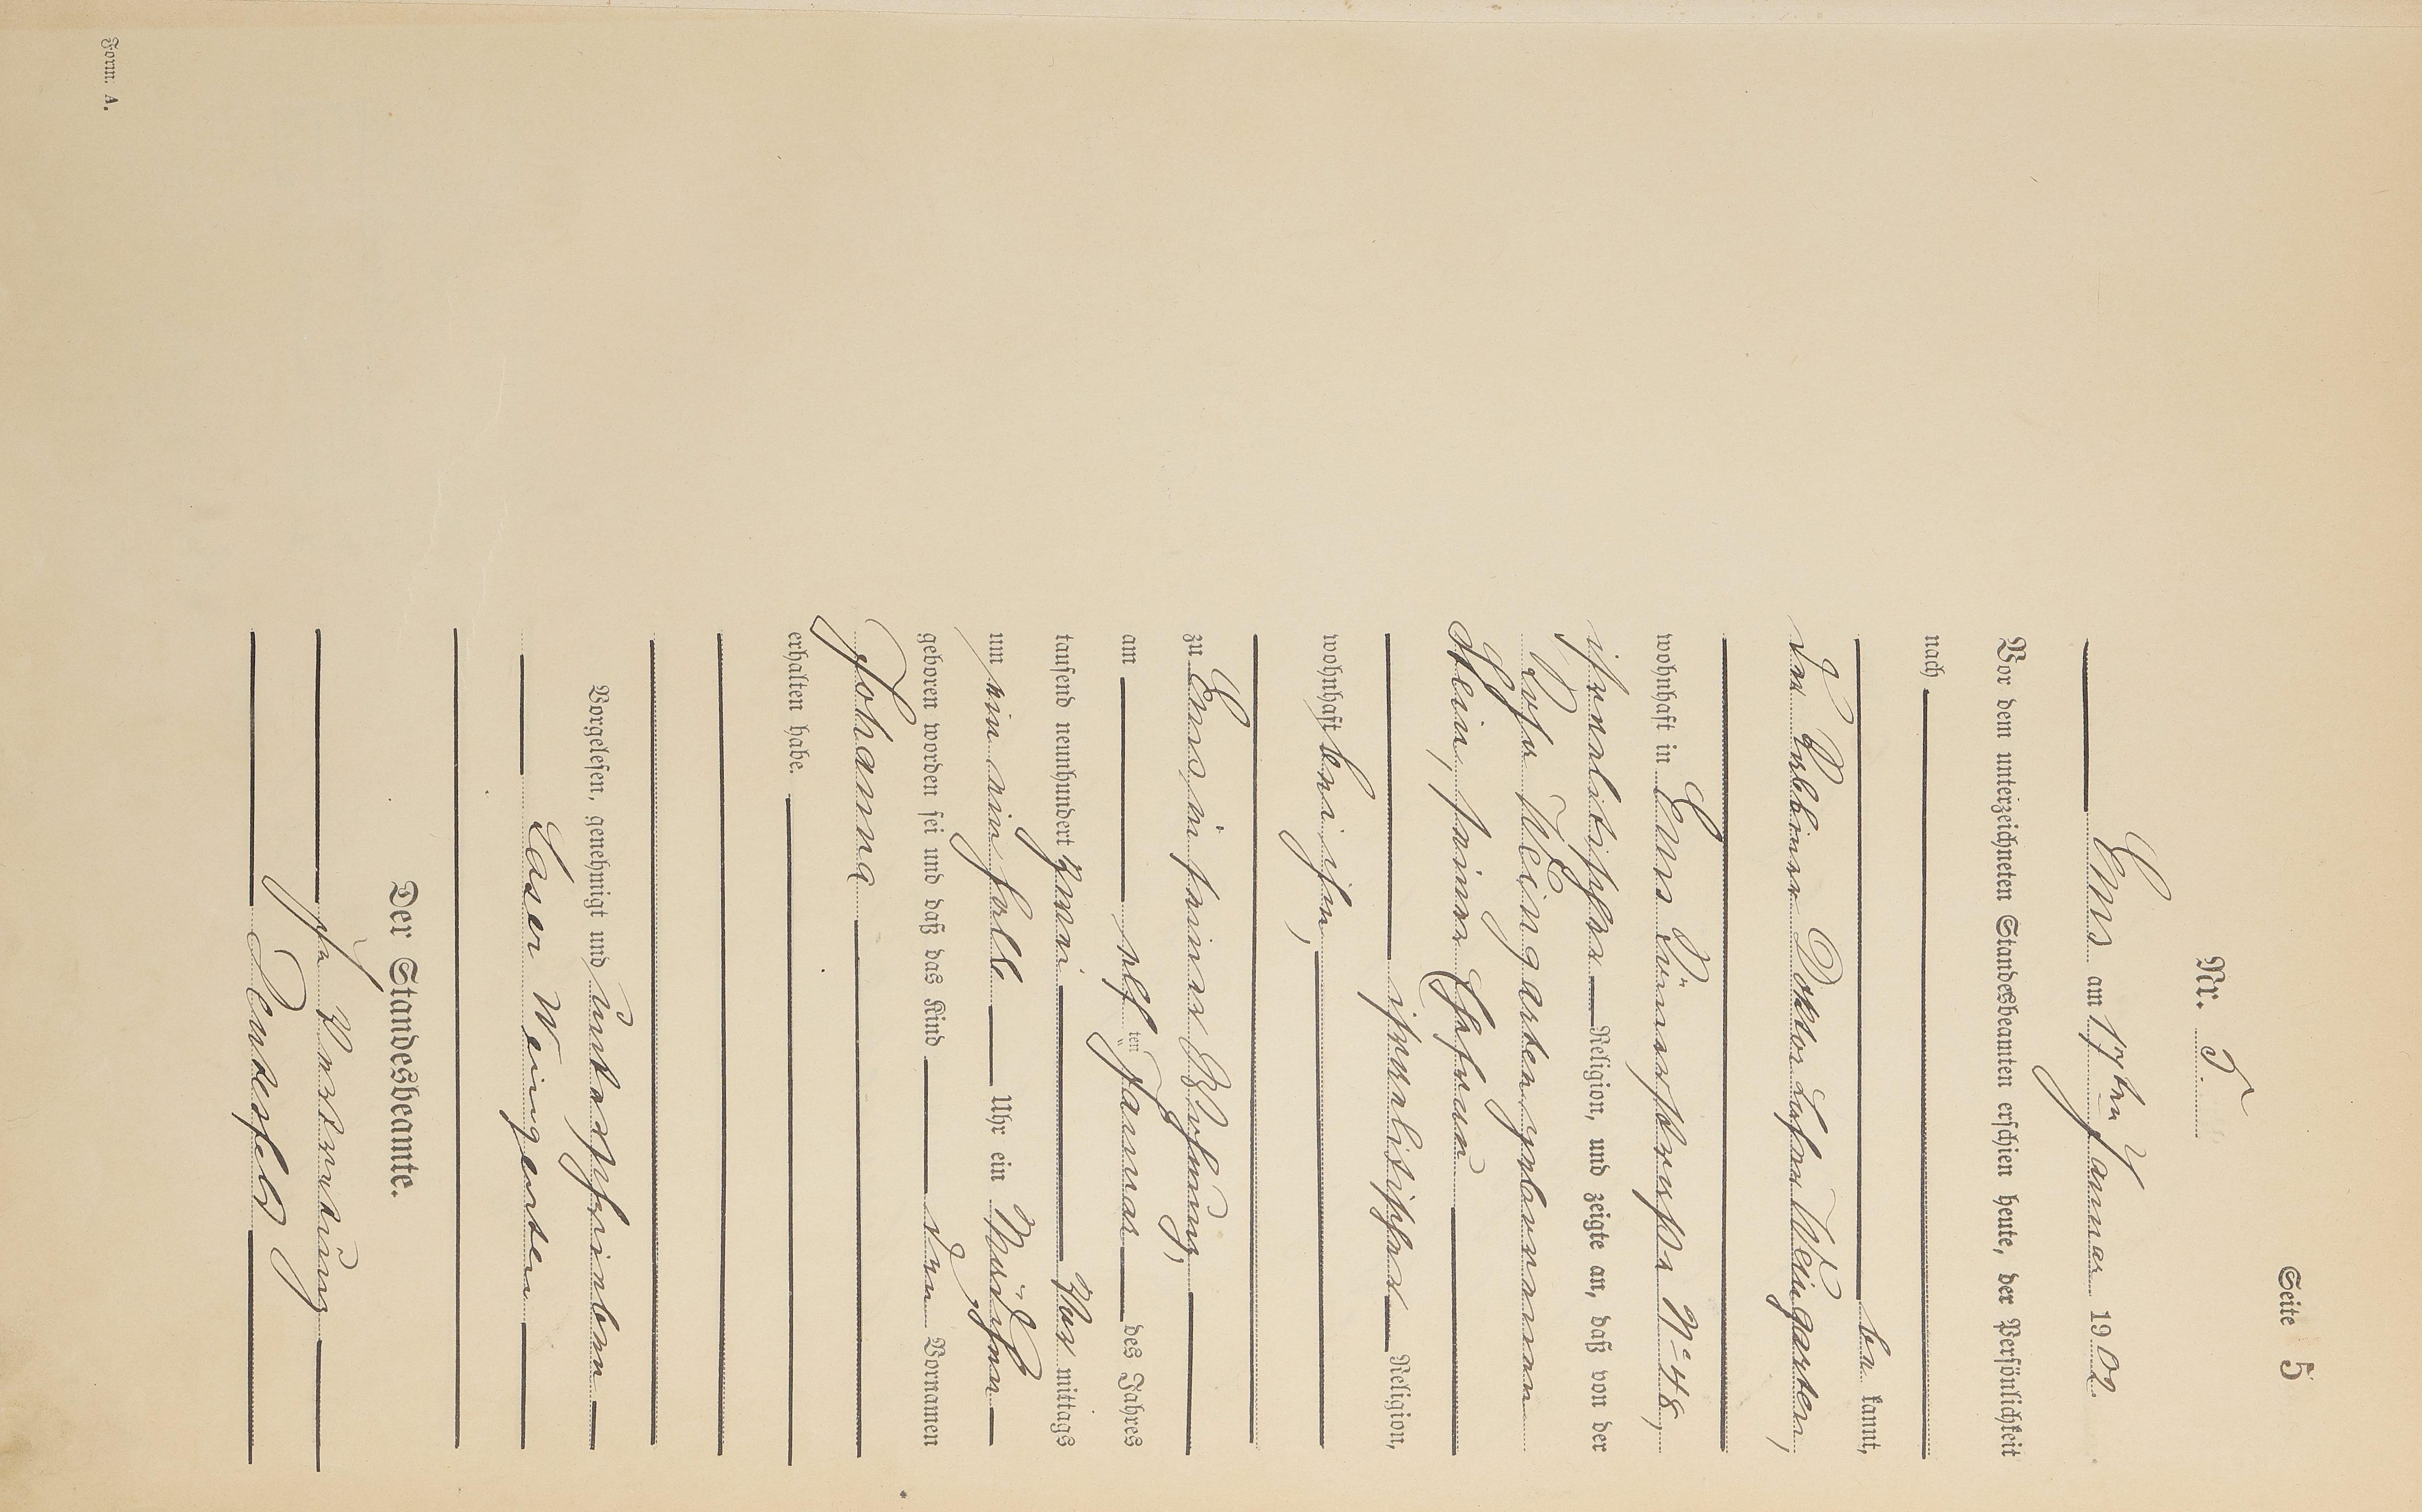 Seite 5
Nr. 5.
Ems am 17ten Januar 1902.
Vor dem unterzeichneten Standesbeamten erschien heute, der Persönlichkeit
nach
be kannt,
der Rabbiner Doktor Laser Weingarten,
wohnhaft in Ems Römerstraße No 48,
israelitischer Religion, und zeigte an, daß von der
Rosa Weingarten geborenen
Stein, seiner Ehefrau
israelitischer Religion,
wohnhaft bei ihm,
zu Ems in seiner Wohnung,
am elf ten Januar des Jahres
tausend neunhundert zwei Vor mittags
um ein einhalb Uhr ein Mädchen
geboren worden sei und daß das Kind den Vornamen
Johanna
erhalten habe.
Vorgelesen, genehmigt und unterschrieben
Laser Weingarten
Der Standesbeamte.
In Vertretung
Form. A.